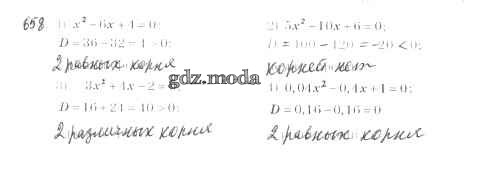 658 1) x² - 6x + 4 = 0; 2) 5x² - 10x + 6 = 0;
D = 36 - 32 = 4 > 0; D = 100 - 120 = -20 < 0;
2 равных корня корней нет
gdz.moda
3) 3x² + 4x - 2 = 0 4) 0,04x² - 0,4x + 1 = 0;
D = 16 + 24 = 40 > 0; D = 0,16 - 0,16 = 0
2 различных корня 2 равных корня